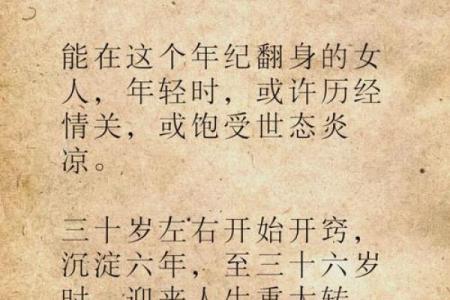 能在这个年纪翻身的女
人，年轻时，或许历经
情关，或饱受世态炎
凉。
三十岁左右开始开窍，
沉淀六年，至三十六岁
时，迎来人生重大转